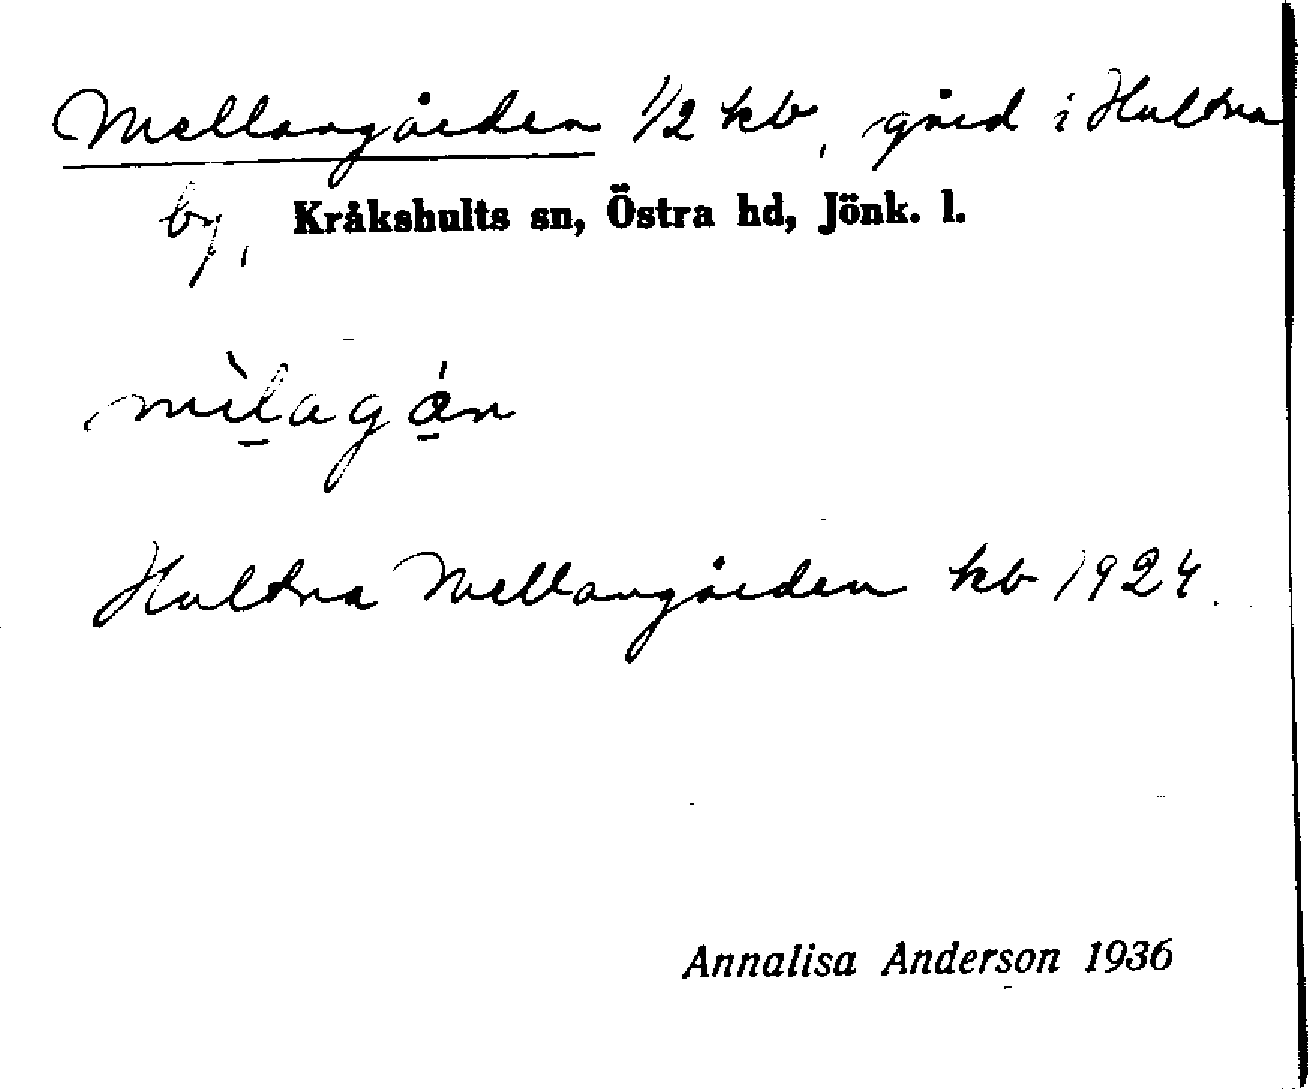 Mellangården 1/2 kb, gård i Hultna
by, Kråkshults sn, Östra hd, Jönk. l.
mìlagán
Hultna Mellangården kb 1924.
Annalisa Anderson 1936